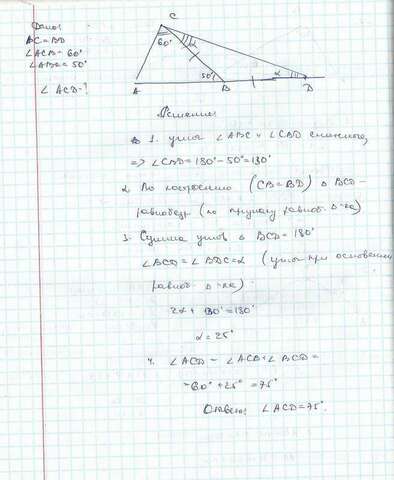 Дано:
BC = BD
∠ACB = 60°
∠ABC = 50°
∠ACD - ?
C
60°
α
50°
α
A
B
D
Решение:
1. углы ∠ABC и ∠CBD смежные,
=> ∠CBD = 180° - 50° = 130°
2. По построению (CB = BD) Δ BCD -
равнобедр (по признаку равноб. Δ-ка)
3. Сумма углов Δ BCD = 180°
∠BCD = ∠BDC = α (углы при основании
равноб. Δ-ка)
2α + 130° = 180°
α = 25°
4. ∠ACD = ∠ACB + ∠BCD =
= 60° + 25° = 75°
Ответ: ∠ACD = 75°.